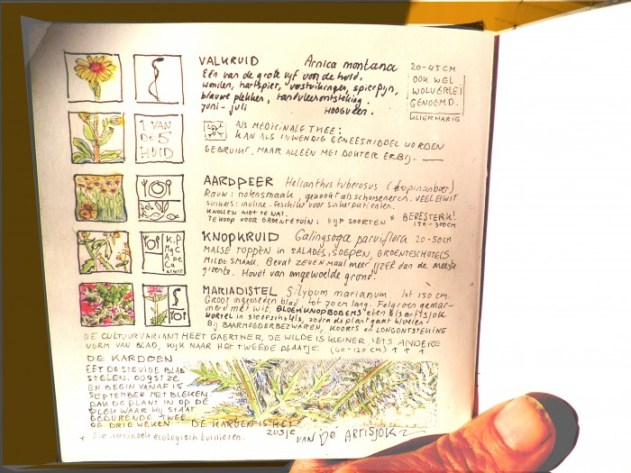 VALKRUID Arnica montana 20-45CM
EEN van de grote vijf van de huid. OOK WEL
wonden, hartspier, verstuikingen, spierpijn, WOLVERLEI
blauwe plekken, tandvleesontsteking. GENOEMD.
juni - juli HOOGVEEN.
1 VAN
DE 5
HUID
ALS MEDICINALE THEE:
KAN ALS INWENDIG GENEESMIDDEL WORDEN
GEBRUIKT, MAAR ALLEEN MET DOKTER ERBIJ.
AARDPEER Helianthus tuberosus (topinamboer)
Rauw: notensmaak, gekookt als schorseneren. VEEL EIWIT
suikers: inuline. Geschikt voor suikerpatienten.
KNOLLEN NIET TE NAT. BERESTERK!
TE KOOP VOOR GROENTETUIN: SOORTEN *
KNOPKRUID Galinsoga parviflora 20-50cm
MALSE TOPPEN in SALADES, SOEPEN, GROENTESCHOTELS
MILDE SMAAK. Bevat ZEVEN maal meer IJZER dan de meeste
groente. Houdt van omgewoelde grond.
MARIADISTEL Silybum marianum tot 150 cm.
GROOT ingesneden blad, tot 70 cm lang. Felgroen gemar-
merd met wit. BLOEMKNOPBODEMS eten als artisjok
WORTEL in stoofschotels, zodra de plant gaat bloeien
BIJ BAARMOEDERBEZWAREN, KOORTS en LONGONTSTEKING
DE CULTUURVARIANT HEET GAERTNER, DE WILDE IS KLEINER, IETS ANDERE
VORM VAN BLAD, KIJK NAAR HET TWEEDE PLAATJE (60-120 cm) ↑ ↑ ↑
DE KARDOEN
EET DE STEVIGE BLAD
STELEN. OOGST ZE
EN BEGIN VANAF 15
SEPTEMBER MET BLEKEN.
PAK DE PLANT IN OP DE
PLEK WAAR HIJ STAAT
GEDURENDE TWEE
OF DRIE WEKEN DE KARDOEN IS HET
zusje VAN DE ARTISJOK
* Zie ecologisch tuinieren.